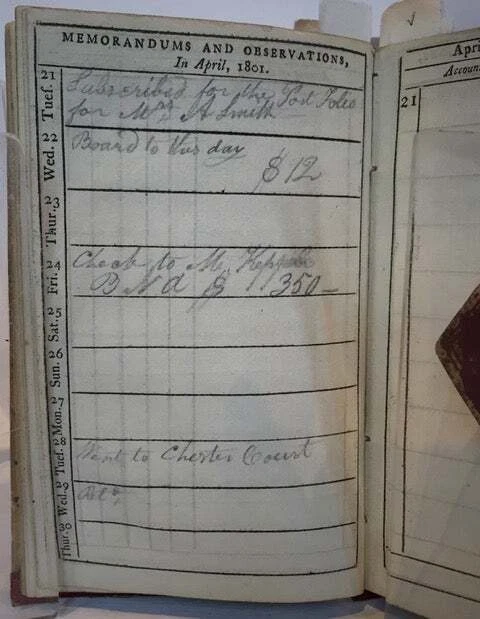 MEMORANDUMS AND OBSERVATIONS,
In April, 1801.
21 Tues.
Subscribed for the Port Folio
for Mrs A Smith
22 Wed.
Board to this day
$12
23 Thur.
24 Fri.
Check to Mr
B N A $ 350—
25 Sat.
26 Sun.
27 Mon.
28 Tues.
Went to Chester Court
29 Wed.
30 Thur.
Apri
Accoun
21